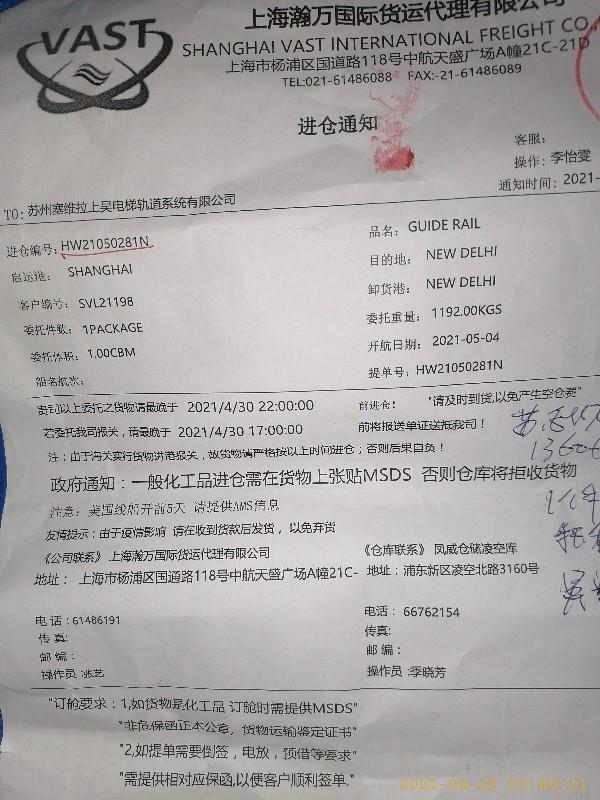 VAST
上海瀚万国际货运代理有限公司
SHANGHAI VAST INTERNATIONAL FREIGHT CO
上海市杨浦区国道路118号中航天盛广场A幢21C-21D
TEL:021-61486088 FAX:-21-61486089
进仓通知
客服:
操作: 李怡雯
通知时间: 2021-
TO: 苏州塞维拉上吴电梯轨道系统有限公司
进仓编号: HW21050281N 品名: GUIDE RAIL
启运港: SHANGHAI 目的地: NEW DELHI
客户编号: SVL21198 卸货港: NEW DELHI
委托件数: 1PACKAGE 委托重量: 1192.00KGS
委托体积: 1.00CBM 开航日期: 2021-05-04
船名航次: 提单号: HW21050281N
贵司以上委托之货物请最晚于 2021/4/30 22:00:00 前进仓! "请及时到货,以免产生空仓费"
若委托我司报关, 请最晚于 2021/4/30 17:00:00 前将报送单证送抵我司!
注: 由于海关实行货物进港报关, 故货物请严格按以上时间进仓; 否则后果自负!
政府通知: 一般化工品进仓需在货物上张贴MSDS 否则仓库将拒收货物
注意: 美国线船开前5天 请提供AMS信息
友情提示: 由于疫情影响 请在收到货款后发货, 以免弃货
《公司联系》 上海瀚万国际货运代理有限公司 《仓库联系》 凤威仓储凌空库
地址: 上海市杨浦区国通路118号中航天盛广场A幢21C- 地址: 浦东新区凌空北路3160号
电话: 61486191 电话: 66762154
传真: 传真:
邮编: 邮编:
操作员:张艺 操作员:季晓芳
"订舱要求: 1,如货物是化工品 订舱时需提供MSDS"
"非危保函正本公章, 货物运输鉴定证书"
"2,如提单需要倒签, 电放, 预借等要求"
"需提供相对应保函,以便客户顺利签单."
2021-04-28 21:40:11